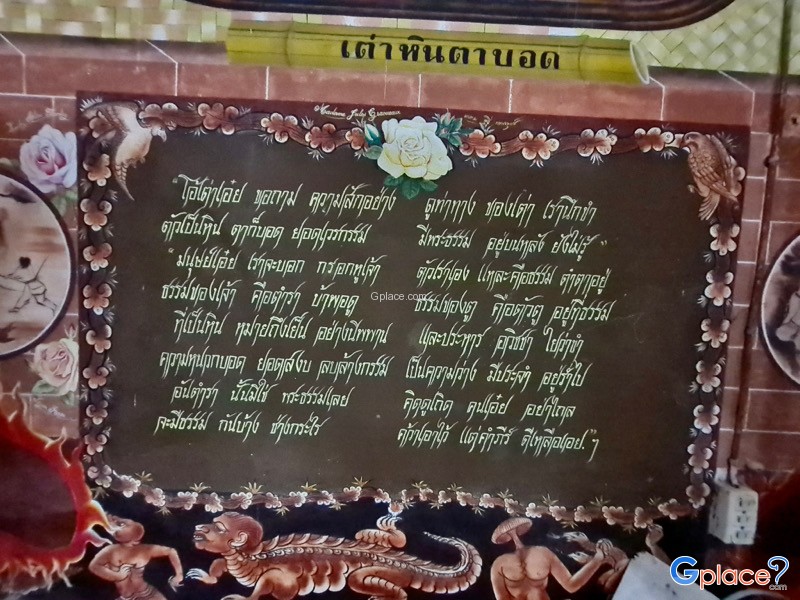 เต่าหินตาบอด
"โอ้เต่าเอ๋ย ขอถาม ความสักอย่าง ดูท่าทาง ของเต่า เรานึกขำ
ตัวเป็นหิน ตาก็บอด ยอดเวรกรรม มีพระธรรม อยู่บนหลัง ยังไม่รู้"
"มนุษย์เอ๋ย เราจะบอก กรอกหูเจ้า ตัวเราเอง แหละคือธรรม ตำตาอยู่
ธรรมของเจ้า คือตำรา บ้าพอดู ธรรมของตู คือตัวตู อยู่ที่ธรรม
ที่เป็นหิน หมายถึงเย็น อย่างนิพพาน และประหาร อวิชชา ไม่ว่าขำ
ความหนวกบอด ยอดสงบ ลบล้างกรรม เป็นความว่าง มีประจำ อยู่ร่ำไป
อันตำรา นั้นมิใช่ พระธรรมเลย คิดดูเถิด คนเอ๋ย อย่าไถล
จะมีธรรม กันบ้าง ช่างกระไร คว้าเอาไว้ แต่คัมภีร์ ดีเหลือเอย."ฯ
Gplace.com
Gplace?.com